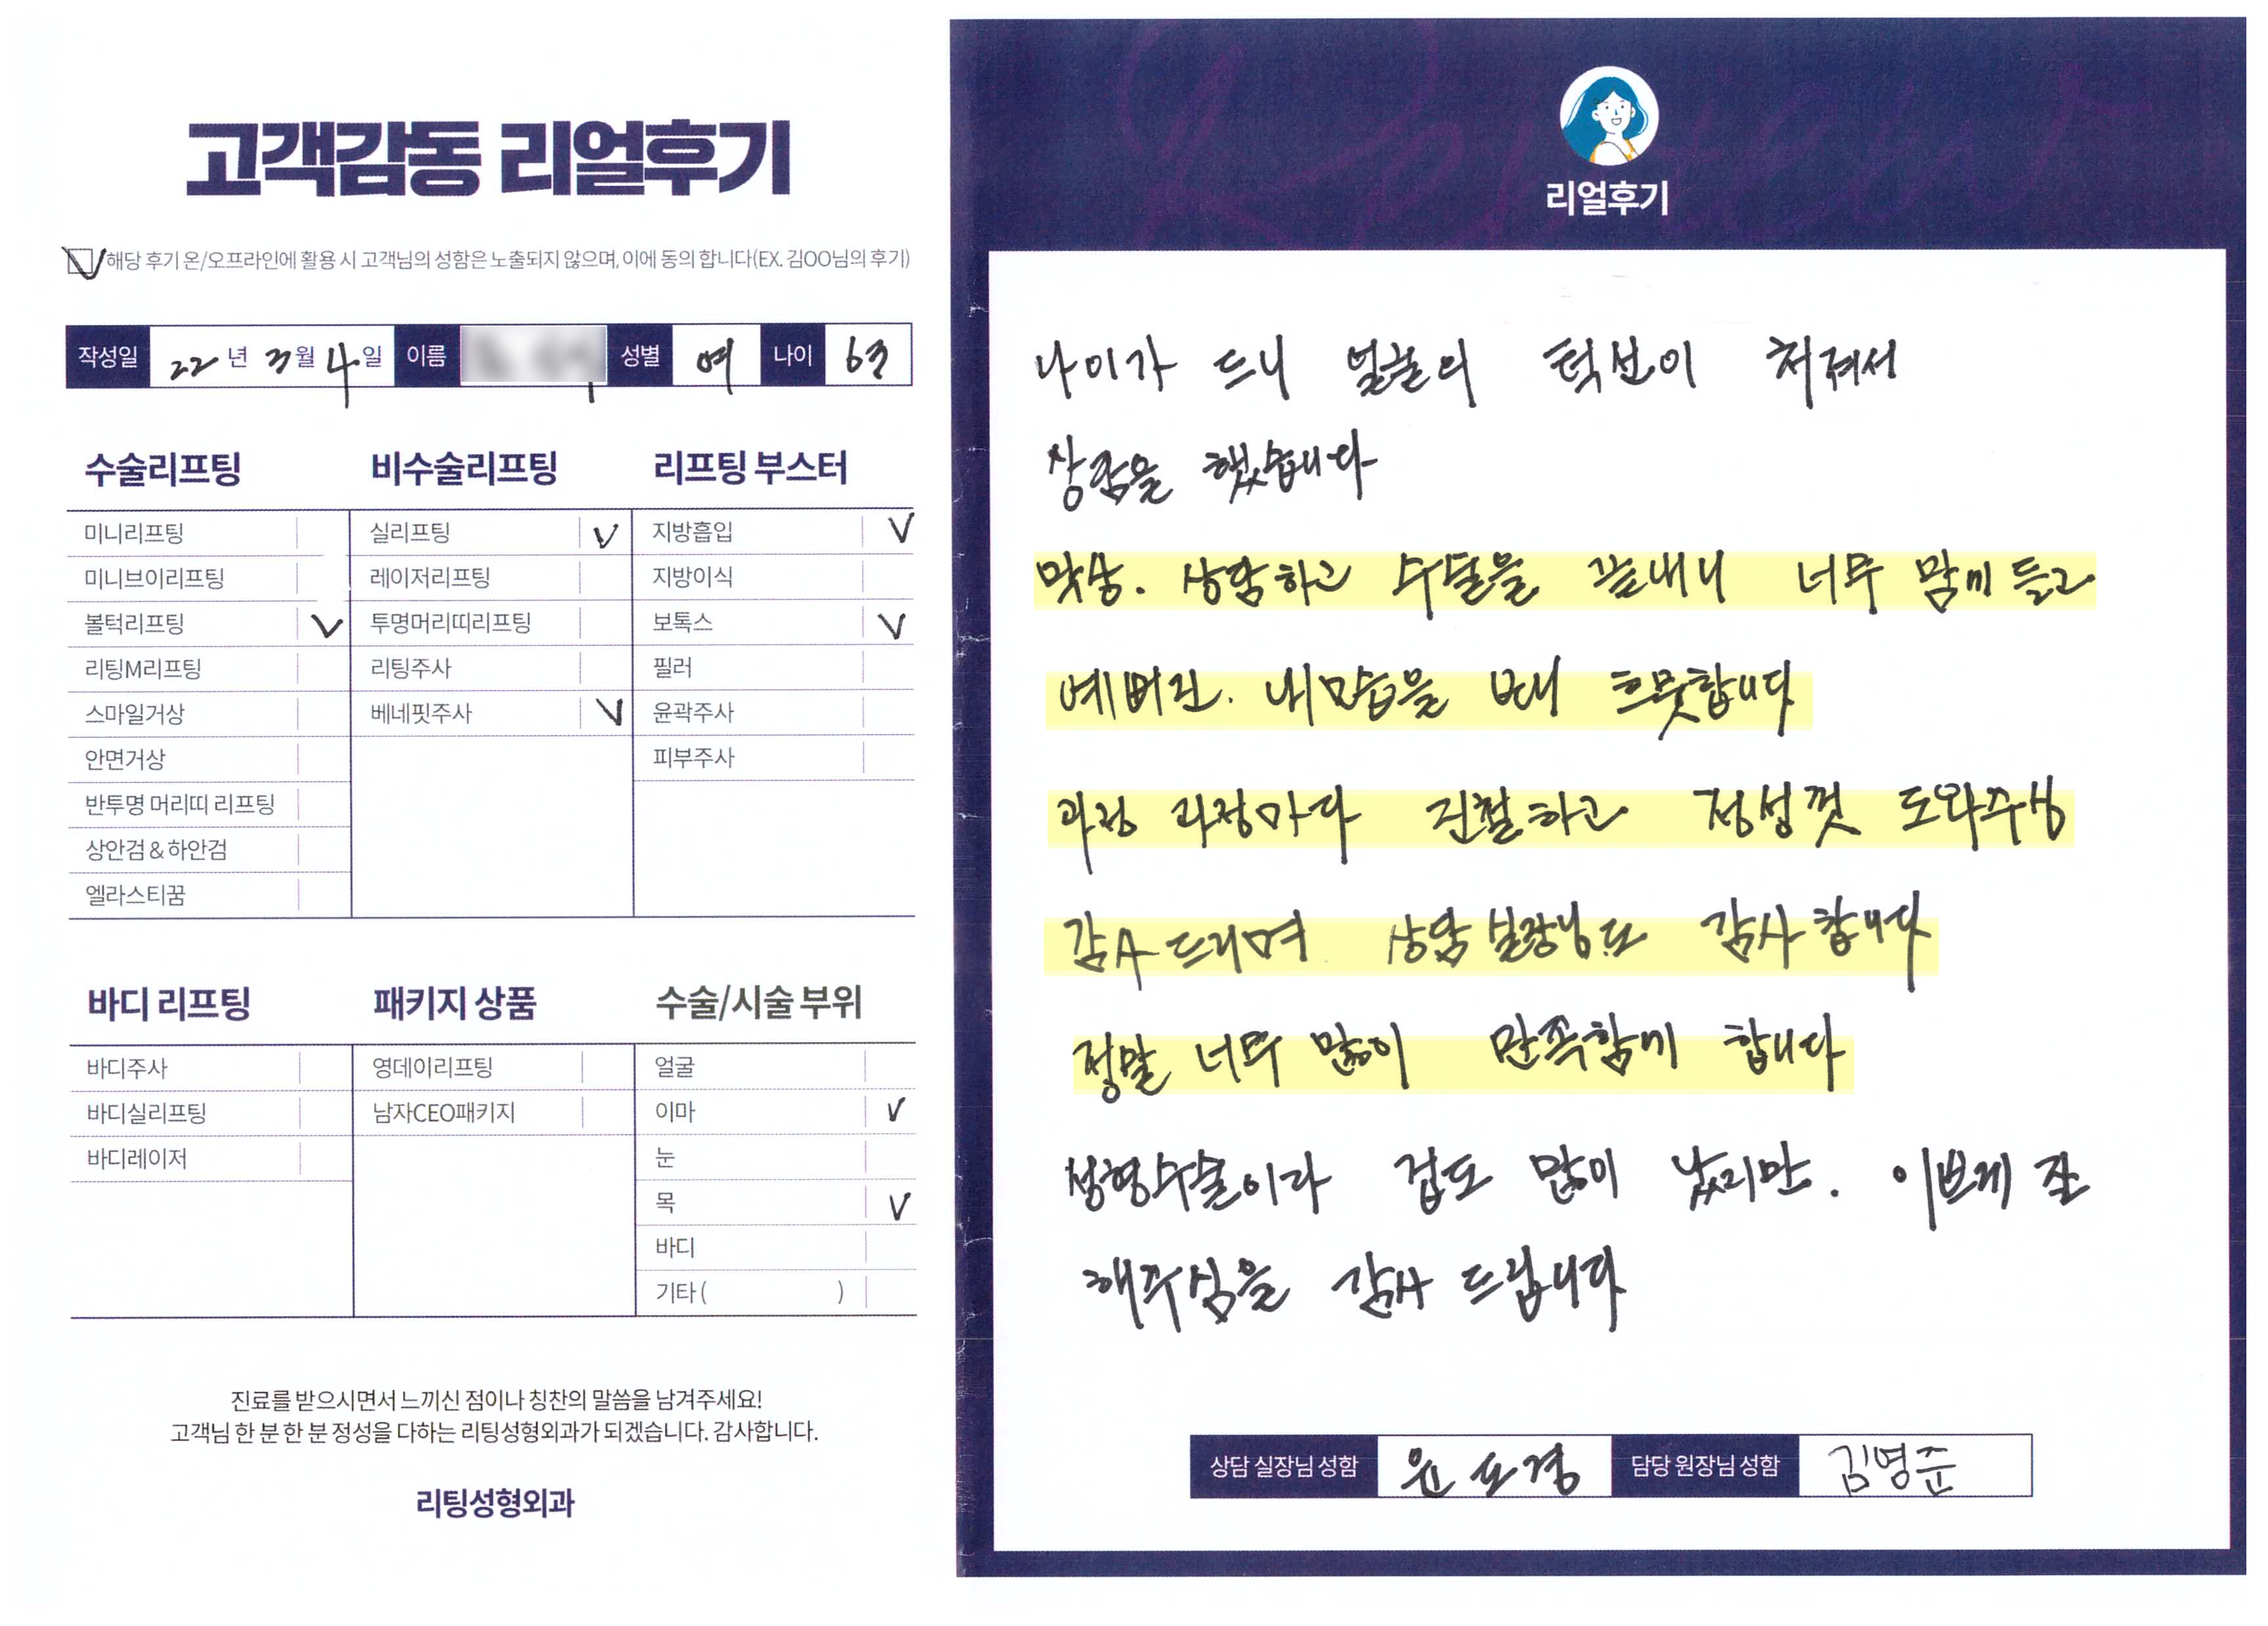 고객감동 리얼후기
해당 후기 온/오프라인에 활용 시 고객님의 성함은 노출되지 않으며, 이에 동의 합니다(EX. 김OO님의 후기)
작성일 22 년 3 월 4 일 이름 성별 여 나이 63
수술리프팅
미니리프팅
미니브이리프팅
볼턱리프팅
리팅M리프팅
스마일거상
안면거상
반투명 머리띠 리프팅
상안검 & 하안검
엘라스티꿈
비수술리프팅
실리프팅
레이저리프팅
투명머리띠리프팅
리팅주사
베네핏주사
리프팅 부스터
지방흡입
지방이식
보톡스
필러
윤곽주사
피부주사
바디 리프팅
바디주사
바디실리프팅
바디레이저
패키지 상품
영데이리프팅
남자CEO패키지
수술/시술 부위
얼굴
이마
눈
목
바디
기타 ( )
진료를 받으시면서 느끼신 점이나 칭찬의 말씀을 남겨주세요!
고객님 한 분 한 분 정성을 다하는 리팅성형외과가 되겠습니다. 감사합니다.
리팅성형외과
리얼후기
나이가 드니 얼굴의 턱선이 처져서
상담을 했습니다
막상. 상담하고 수술을 끝내니 너무 맘에 들고
예뻐진. 내모습을 보며 흐뭇합니다
과정 과정마다 친절하고 정성껏 도와주셔
감사 드리며 상담 실장님도 감사 합니다
정말 너무 많이 만족함에 합니다
성형수술이라 겁도 많이 났지만. 이쁘게 잘
해주심을 감사 드립니다
상담 실장님 성함 윤도경 담당 원장님 성함 김명준